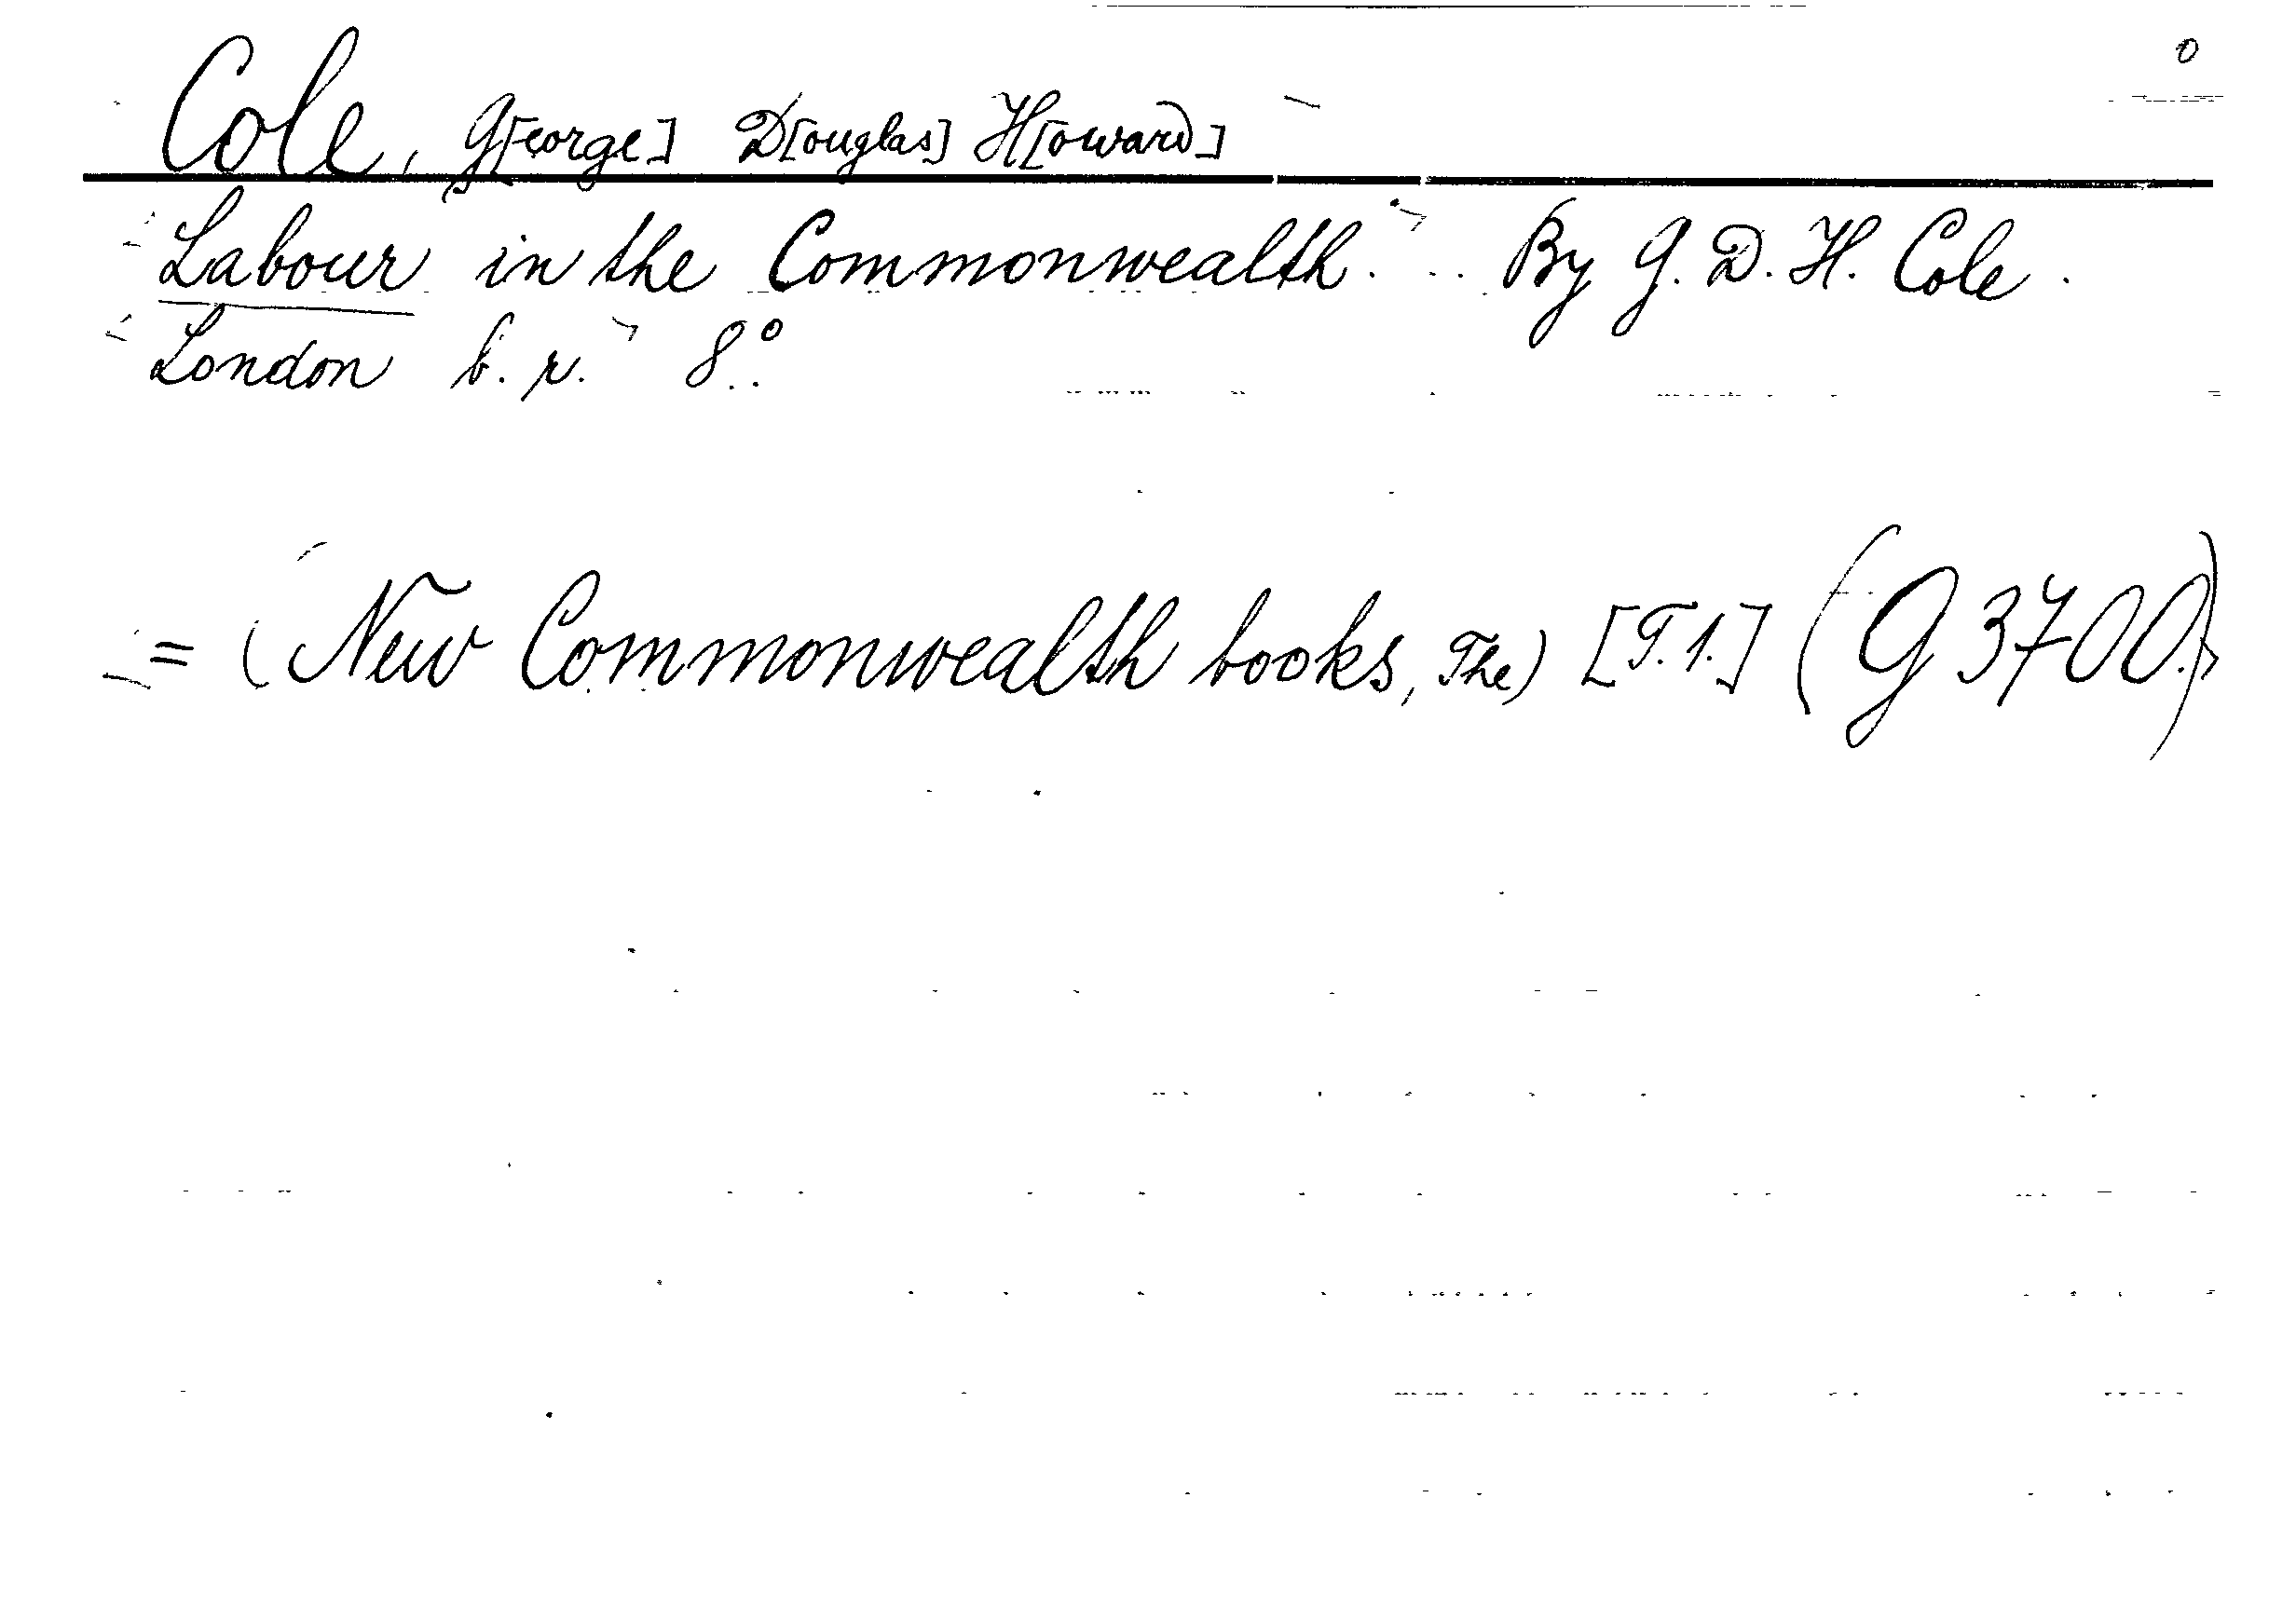 0
Cole, G[eorge] D[ouglas] H[oward]
Labour in the Commonwealth... By G. D. H. Cole.
London b. r. 8°.
= (New Commonwealth books, The) [T. 1.] (G 3700.)